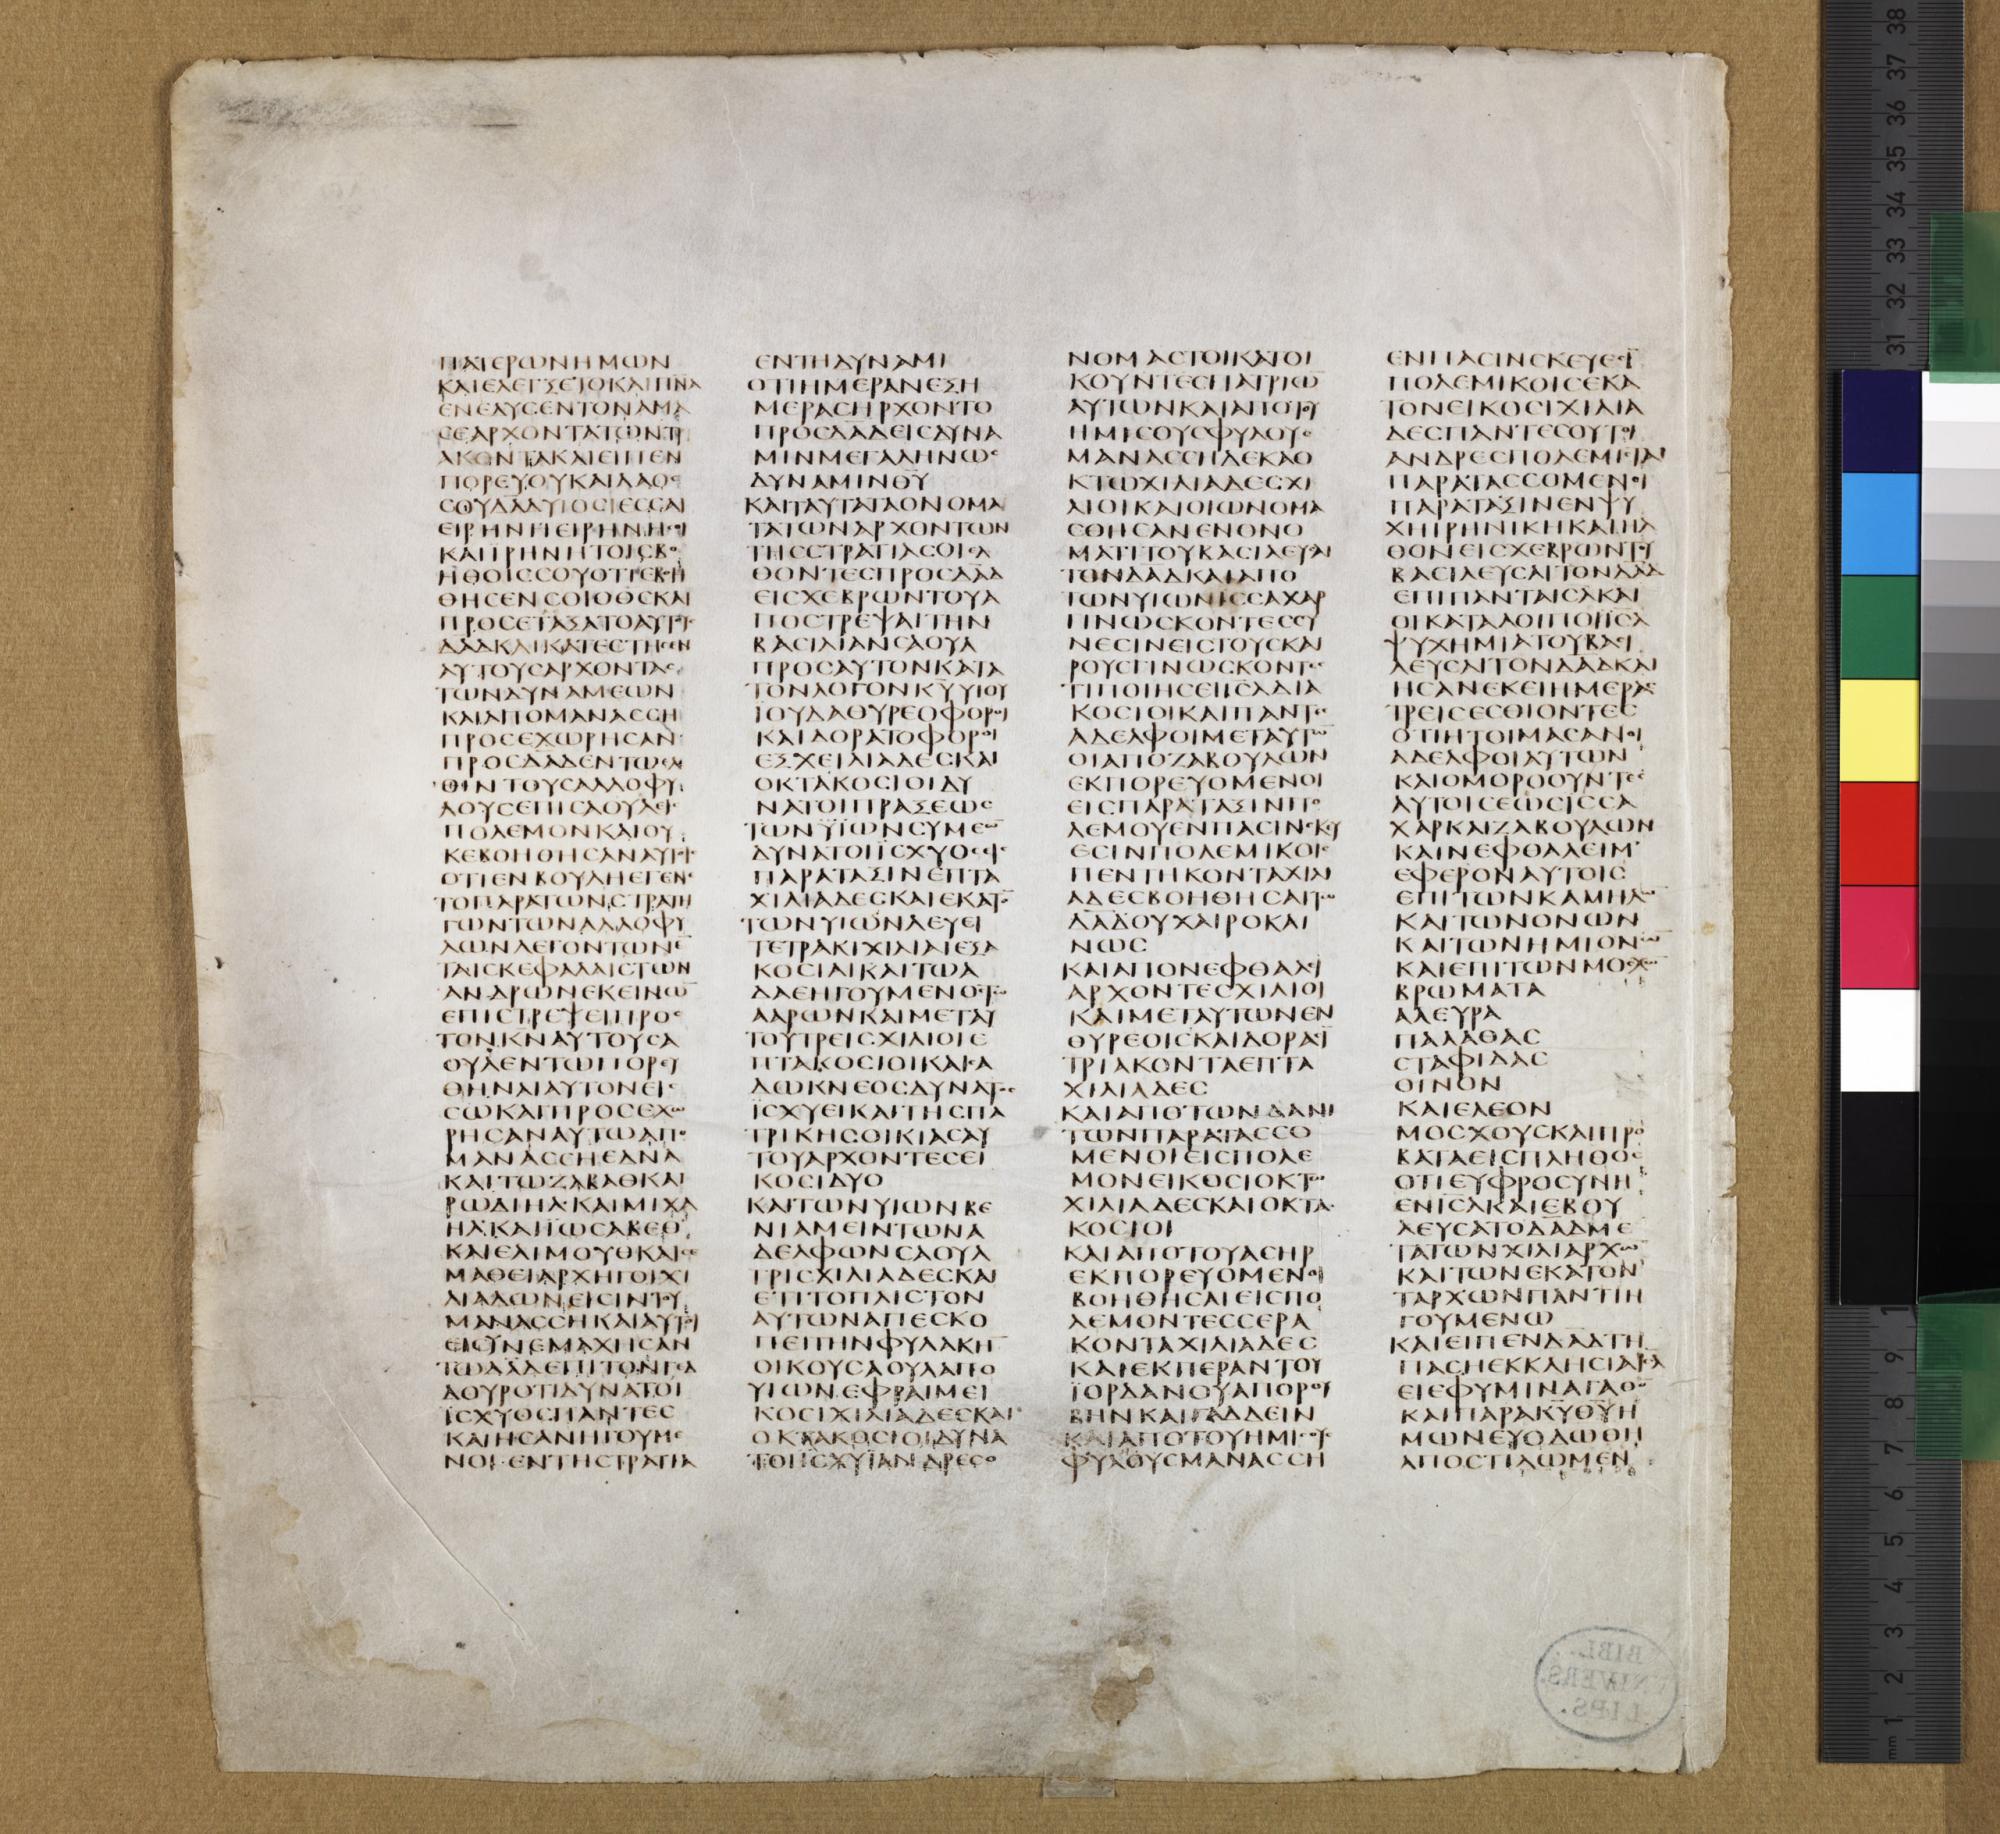 ΠΑΤΕΡΩΝΗΜΩΝ
ΚΑΙΕΛΕΓΞΕΤΟΚΑΙΠΝΑ
ΕΝΕΔΥΣΕΝΤΟΝΑΜΑ
ΣΕΑΡΧΟΝΤΑΤΩΝΤΡΙ
ΑΚΟΝΤΑΚΑΙΕΙΠΕΝ
ΠΟΡΕΥΟΥΚΑΙΛΑΟΣ
ΣΟΥΔΑΔΥΙΟΣΙΕΣΣΑΙ
ΕΙΡΗΝΗΕΙΡΗΝΗΣΟΙ
ΚΑΙΙΡΗΝΗΤΟΙΣΒΟ
ΗΘΟΙΣΣΟΥΟΤΙΕΒΟΗ
ΘΗΣΕΝΣΟΙΟΘΣΚΑΙ
ΠΡΟΣΕΤΑΞΑΤΟΑΥΤΟΙΣ
ΔΑΔΚΑΙΚΑΤΕΣΤΗΣΕΝ
ΑΥΤΟΥΣΑΡΧΟΝΤΑΣ
ΤΩΝΔΥΝΑΜΕΩΝ
ΚΑΙΑΠΟΜΑΝΑΣΣΗ
ΠΡΟΣΕΧΩΡΗΣΑΝ
ΠΡΟΣΔΑΔΕΝΤΩΕΛ
ΘΙΝΤΟΥΣΑΛΛΟΦΥ
ΛΟΥΣΕΠΙΣΑΟΥΛΕΙΣ
ΠΟΛΕΜΟΝΚΑΙΟΥ
ΚΕΒΟΗΘΗΣΑΝΑΥΤΟΙΣ
ΟΤΙΕΝΒΟΥΛΗΕΓΕΝΕ
ΤΟΠΑΡΑΤΩΝΣΤΡΑΤΗ
ΓΩΝΤΩΝΑΛΛΟΦΥ
ΛΩΝΛΕΓΟΝΤΩΝΕ
ΤΑΙΣΚΕΦΑΛΑΙΣΤΩΝ
ΑΝΔΡΩΝΕΚΕΙΝΩ
ΕΠΙΣΤΡΕΨΕΙΠΡΟΣ
ΤΟΝΚΝΑΥΤΟΥΣΑ
ΟΥΛΕΝΤΩΠΟΡΕΥ
ΘΗΝΑΙΑΥΤΟΝΕΙΣ
ΣΩΚΑΓΠΡΟΣΕΧΩ
ΡΗΣΑΝΑΥΤΩΑΠΟ
ΜΑΝΑΣΣΗΕΔΝΑ
ΚΑΙΤΩΖΑΒΑΘΚΑΙ
ΡΩΔΙΗΛΚΑΙΜΙΧΑ
ΗΛΚΑΙΪΩΣΑΒΕΘ
ΚΑΙΕΛΙΜΟΥΘΚΑΙΣΕ
ΜΑΘΕΙΑΡΧΗΓΟΙΧΙ
ΛΙΑΔΩΝΕΙΣΙΝΤΟΥ
ΜΑΝΑΣΣΗΚΑΙΑΥΤΟΙ
ΕΙΣΥΝΕΜΑΧΗΣΑΝ
ΤΩΔΑΔΕΠΙΤΟΝΓΕΔ
ΔΟΥΡΟΤΙΔΥΝΑΤΟΙ
ΪΣΧΥΘΣΠΑΝΤΕΣ
ΚΑΙΗΣΑΝΗΓΟΥΜΕ
ΝΟΙΕΝΤΗΣΤΡΑΤΙΑ
ΕΝΤΗΔΥΝΑΜΙ
ΟΤΙΗΜΕΡΑΝΕΞΗ
ΜΕΡΑΣΗΡΧΟΝΤΟ
ΠΡΟΣΔΑΔΕΙΣΔΥΝΑ
ΜΙΝΜΕΓΑΛΗΝΩΣ
ΔΥΝΑΜΙΝΘΥ
ΚΑΙΤΑΥΤΑΤΑΟΝΟΜΑ
ΤΑΤΩΝΑΡΧΟΝΤΩΝ
ΤΗΣΣΤΡΑΤΙΑΣΟΙΕΛ
ΘΟΝΤΕΣΠΡΟΣΔΑΔ
ΕΙΣΧΕΒΡΩΝΤΟΥΑ
ΠΟΣΤΡΕΨΑΙΤΗΝ
ΒΑΣΙΛΙΑΝΣΑΟΥΛ
ΠΡΟΣΑΥΤΟΝΚΑΤΑ
ΤΟΝΛΟΓΟΝΚΥΥΙΟΥ
ΙΟΥΔΑΘΥΡΕΟΦΟΡΟΙ
ΚΑΙΔΟΡΑΤΟΦΟΡΟΙ
ΕΞΧΕΙΛΙΑΔΕΣΚΑΙ
ΟΚΤΑΚΟΣΙΟΙΔΥ
ΝΑΤΟΙΠΡΑΞΕΩΣ
ΤΩΝΥΪΩΝΣΥΜΕΩ
ΔΥΝΑΤΟΙΙΣΧΥΟΣΕΙΣ
ΠΑΡΑΤΑΞΙΝΕΠΤΑ
ΧΙΛΙΑΔΕΣΚΑΙΕΚΑΤΟ
ΤΩΝΥΙΩΝΛΕΥΕΙ
ΤΕΤΡΑΚΙΧΙΛΙΑΙΕΞΑ
ΚΟΣΙΑΙΚΑΙΤΩΑ
ΔΑΕΗΓΟΥΜΕΝΟΣΤΩ
ΑΑΡΩΝΚΑΙΜΕΤΑΥ
ΤΟΥΤΡΕΙΣΧΙΛΙΟΙΕ
ΠΤΑΚΟΣΙΟΙΚΑΙΣΑ
ΔΩΚΝΕΟΣΔΥΝΑΤΟΣ
ΪΣΧΥΕΙΚΑΙΤΗΣΠΑ
ΤΡΙΚΗΣΟΙΚΙΑΣΑΥ
ΤΟΥΑΡΧΟΝΤΕΣΕΙ
ΚΟΣΙΔΥΟ
ΚΑΙΤΩΝΥΙΩΝΒΕ
ΝΙΑΜΕΙΝΤΩΝΑ
ΔΕΛΦΩΝΣΑΟΥΛ
ΤΡΙΣΧΙΛΙΑΔΕΣΚΑΙ
ΕΤΙΤΟΠΛΙΣΤΟΝ
ΑΥΤΩΝΑΠΕΣΚΟ
ΠΕΙΤΗΝΦΥΛΑΚΗ
ΟΙΚΟΥΣΑΟΥΛΑΠΟ
ΥΙΩΝΕΦΡΑΙΜΕΙ
ΚΟΣΙΧΙΛΙΑΔΕΣΚΑΙ
ΟΚΤΑΚΟΣΙΟΙΔΥΝΑ
ΤΟΙΙΣΧΥΪΑΝΔΡΕΣΟ
ΝΟΜΑΣΤΟΙΚΑΤΟΙ
ΚΟΥΝΤΕΣΠΑΤΡΙΩ
ΑΥΤΩΝΚΑΙΑΠΟΤΟΥ
ΗΜΙΣΟΥΣΦΥΛΟΥΣ
ΜΑΝΑΣΣΗΔΕΚΑΟ
ΚΤΩΧΙΛΙΑΔΕΣΧΙ
ΛΙΟΙΚΑΙΟΙΩΝΟΜΑ
ΣΘΗΣΑΝΕΝΟΝΟ
ΜΑΤΙΤΟΥΒΑΣΙΛΕΥΣΑΙ
ΤΟΝΔΑΔΚΑΙΑΠΟ
ΤΩΝΥΙΩΝΙΣΣΑΧΑΡ
ΓΙΝΩΣΚΟΝΤΕΣΣΥ
ΝΕΣΙΝΕΙΣΤΟΥΣΚΑΙ
ΡΟΥΣΓΙΝΩΣΚΟΝΤΕΣ
ΤΙΠΟΙΗΣΕΙΙΣΛΔΙΑ
ΚΟΣΙΟΙΚΑΙΠΑΝΤΕΣ
ΑΔΕΛΦΟΙΜΕΤΑΥΤΩ
ΟΙΑΠΟΖΑΒΟΥΛΩΝ
ΕΚΠΟΡΕΥΟΜΕΝΟΙ
ΕΙΣΠΑΡΑΤΑΞΙΝΠΟ
ΛΕΜΟΥΕΝΠΑΣΙΝΣΚΕΥ
ΕΣΙΝΠΟΛΕΜΙΚΟΙΣ
ΠΕΝΤΗΚΟΝΤΑΧΙΛΙ
ΑΔΕΣΒΟΗΘΗΣΑΙΤΩ
ΔΑΔΟΥΧΑΙΡΟΚΑΙ
ΝΩΣ
ΚΑΙΑΠΟΝΕΦΘΑΛΙ
ΑΡΧΟΝΤΕΣΧΙΛΙΟΙ
ΚΑΙΜΕΤΑΥΤΩΝΕΝ
ΘΥΡΕΟΙΣΚΑΙΔΟΡΑΣΙ
ΤΡΙΑΚΟΝΤΑΕΠΤΑ
ΧΙΛΙΑΔΕΣ
ΚΑΙΑΠΟΤΩΝΔΑΝΙ
ΤΩΝΠΑΡΑΤΑΣΣΟ
ΜΕΝΟΙΕΙΣΠΟΛΕ
ΜΟΝΕΙΚΟΣΙΟΚΤΩ
ΧΙΛΙΑΔΕΣΚΑΙΟΚΤΑ
ΚΟΣΙΟΙ
ΚΑΙΑΠΟΤΟΥΑΣΗΡ
ΕΚΠΟΡΕΥΟΜΕΝΟΙ
ΒΟΗΘΗΣΑΙΕΙΣΠΟ
ΛΕΜΟΝΤΕΣΣΕΡΑ
ΚΟΝΤΑΧΙΛΙΑΔΕΣ
ΚΑΙΕΚΠΕΡΑΝΤΟΥ
ΪΟΡΔΑΝΟΥΑΠΟΡΟΥ
ΒΗΝΚΑΙΓΑΔΔΕΙΝ
ΚΑΙΑΠΟΤΟΥΗΜΙΣΟΥΣ
ΦΥΛΟΥΣΜΑΝΑΣΣΗ
ΕΝΠΑΣΙΝΣΚΕΥΕΣΙ
ΠΟΛΕΜΙΚΟΙΣΕΚΑ
ΤΟΝΕΙΚΟΣΙΧΙΛΙΑ
ΔΕΣΠΑΝΤΕΣΟΥΤΟΙ
ΑΝΔΡΕΣΠΟΛΕΜΙΣΤΑΙ
ΠΑΡΑΤΑΣΣΟΜΕΝΟΙ
ΠΑΡΑΤΑΞΙΝΕΝΨΥ
ΧΗΙΡΗΝΙΚΗΚΑΙΗΛ
ΘΟΝΕΙΣΧΕΒΡΩΝΤΟΥ
ΒΑΣΙΛΕΥΣΑΙΤΟΝΔΑΔ
ΕΠΙΠΑΝΤΑΙΣΛΚΑΙ
ΟΙΚΑΤΑΛΟΙΠΟΙΙΣΛ
ΨΥΧΗΜΙΑΤΟΥΒΑΣΙ
ΛΕΥΣΑΙΤΟΝΔΑΔΚΑΙ
ΗΣΑΝΕΚΕΙΗΜΕΡΑΣ
ΤΡΕΙΣΕΣΘΙΟΝΤΕΣ
ΟΤΙΗΤΟΙΜΑΣΑΝΟΙ
ΑΔΕΛΦΟΙΑΥΤΩΝ
ΚΑΙΟΜΟΡΟΟΥΝΤΕΣ
ΑΥΤΟΙΣΕΩΣΙΣΣΑ
ΧΑΡΚΑΙΖΑΒΟΥΛΩΝ
ΚΑΙΝΕΦΘΑΛΕΙΜ
ΕΦΕΡΟΝΑΥΤΟΙΣ
ΕΠΙΤΩΝΚΑΜΗΛΩ
ΚΑΙΤΩΝΟΝΩΝ
ΚΑΙΤΩΝΗΜΙΟΝΩ
ΚΑΙΕΠΙΤΩΝΜΟΣΧΩ
ΒΡΩΜΑΤΑ
ΑΛΕΥΡΑ
ΠΑΛΑΘΑΣ
ΣΤΑΦΙΔΑΣ
ΟΙΝΟΝ
ΚΑΙΕΛΕΟΝ
ΜΟΣΧΟΥΣΚΑΙΠΡΟ
ΒΑΤΑΕΙΣΠΛΗΘΟΣ
ΟΤΙΕΥΦΡΟΣΥΝΗ
ΕΝΙΣΛΚΑΙΕΒΟΥ
ΛΕΥΣΑΤΟΔΑΔΜΕ
ΤΑΤΩΝΧΙΛΙΑΡΧΩ
ΚΑΙΤΩΝΕΚΑΤΟΝ
ΤΑΡΧΩΝΠΑΝΤΙΗ
ΓΟΥΜΕΝΩ
ΚΑΙΕΙΠΕΝΔΑΔΤΗ
ΠΑΣΗΕΚΚΛΗΣΙΑΙΣΛ
ΕΙΕΦΥΜΙΝΑΓΑΘΟ
ΚΑΙΠΑΡΑΚΥΘΥΗ
ΜΩΝΕΥΟΔΩΘΗ
ΑΠΟΣΤΙΛΩΜΕΝ
BIBL.
UNIVERS.
LIPS.